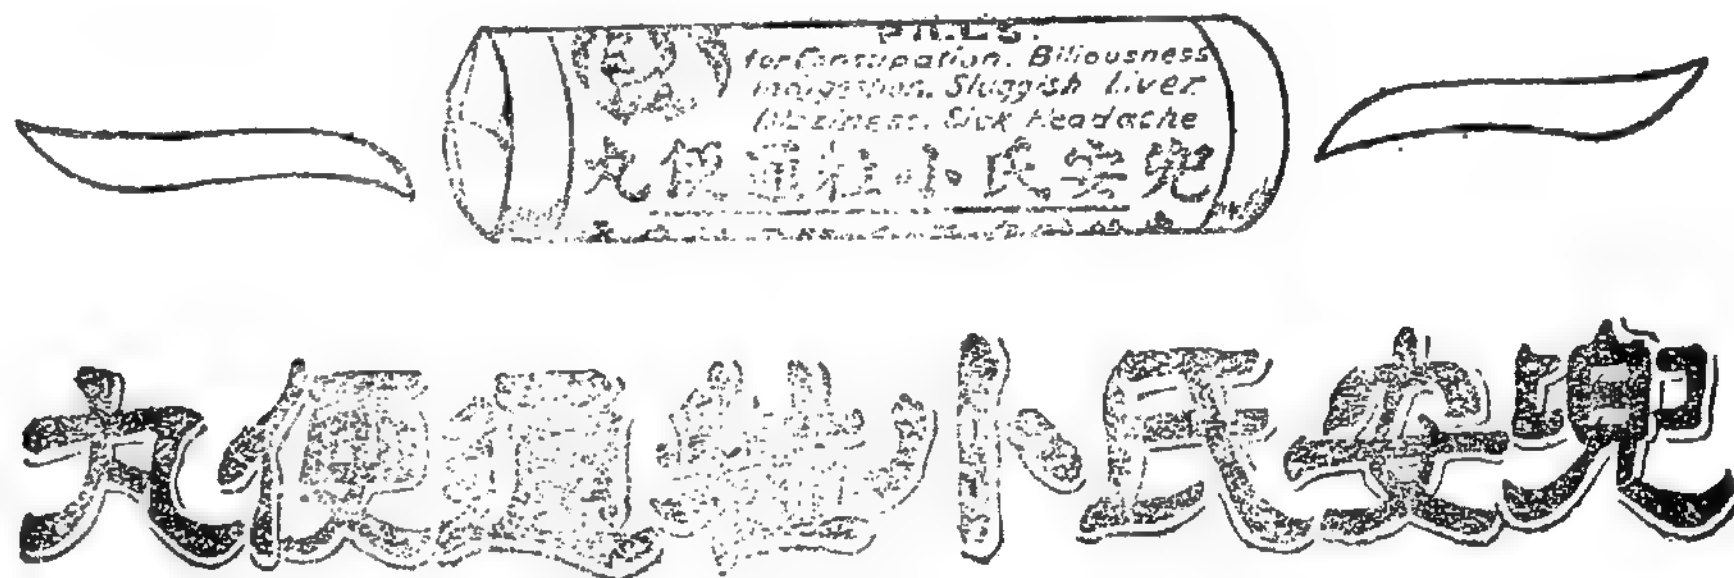 PILLS.
for Constipation. Biliousness
Indigestion. Sluggish Liver
Dizziness. Sick Headache
兜安氏小粒通便丸
兜安氏小粒通便丸